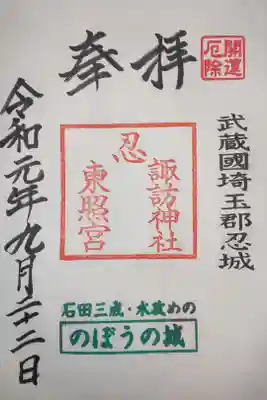 開運
厄除
奉拝
武蔵國埼玉郡忍城
忍
諏訪神社
東照宮
石田三成・水攻めの
のぼうの城
令和元年九月二十二日